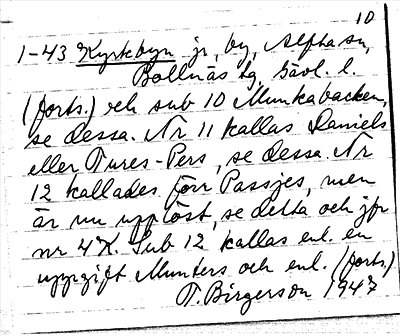 10
1-43 Kyrkbyn jr, by, Alfta sn,
Bollnäs tg, Gävl. l.
(forts.) och sub 10 Munkabacken,
se dessa. Nr 11 kallas Daniels
eller Tures-Pers, se dessa. Nr
12 kallades förr Passjes, men
är nu upplöst, se detta och jfr
nr 4 K. Sub 12 kallas enl. en
uppgift Munters och enl. (forts.)
T. Birgerson 1947